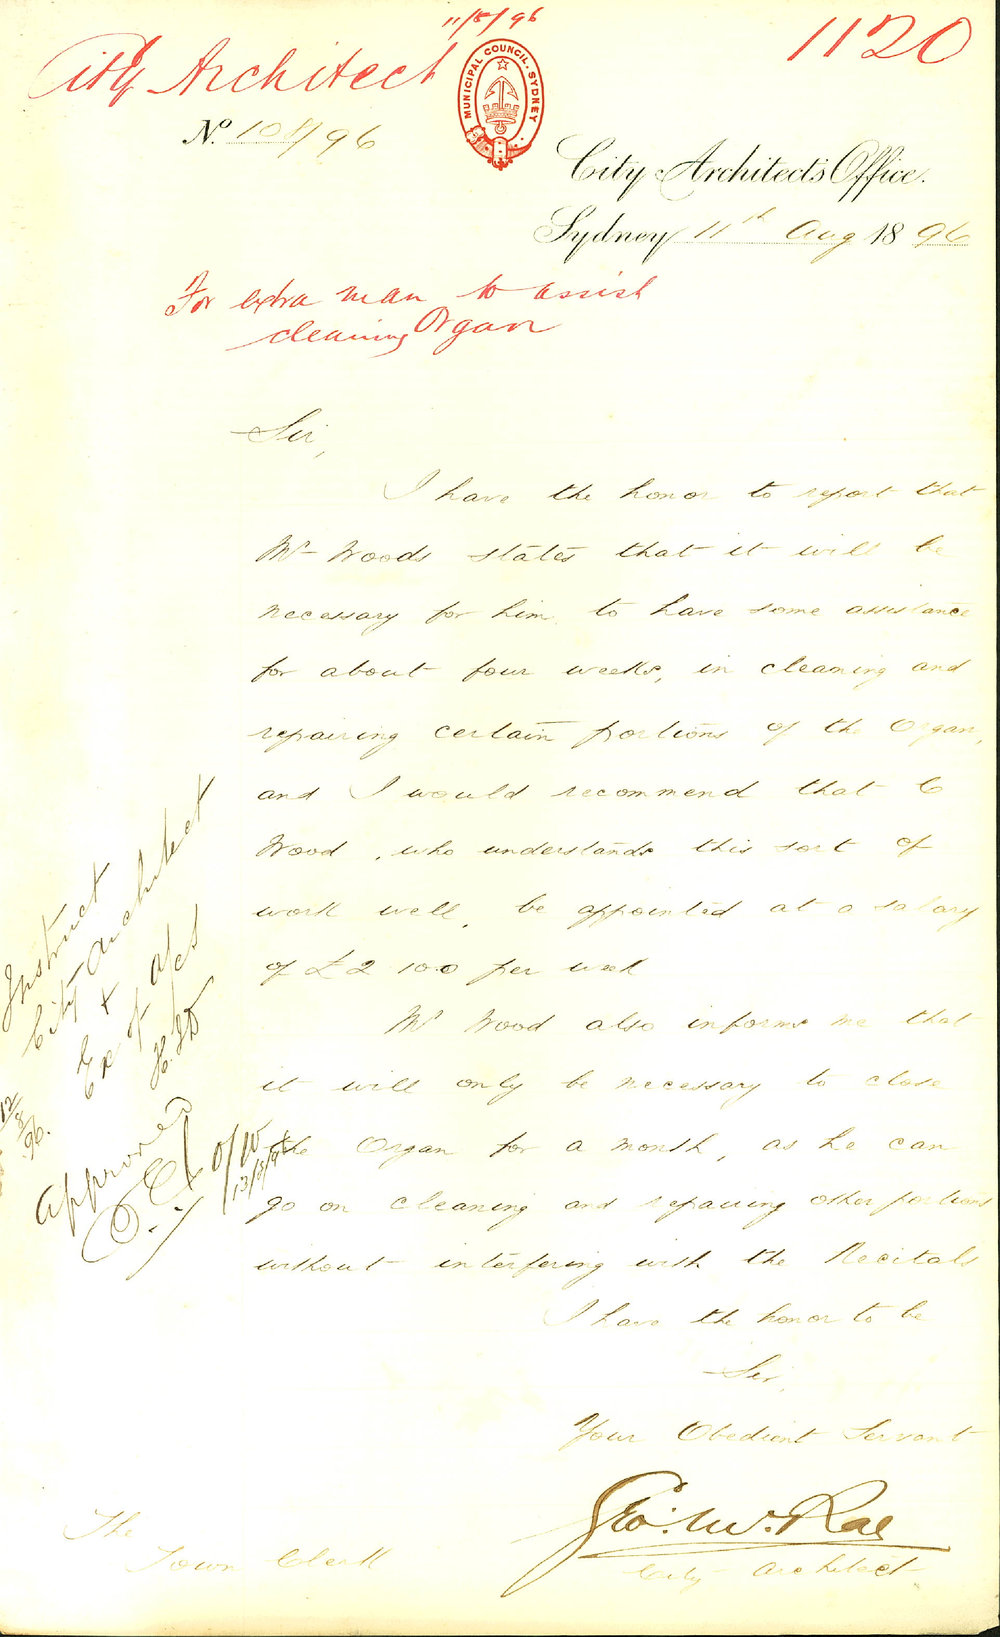 11/8/96
1120
City Architect
MUNICIPAL COUNCIL. SYDNEY
No. 108/96
City Architect's Office.
Sydney 11th Aug 1896
For extra man to assist
cleaning Organ
Sir,
I have the honor to report that
Mr Woods states that it will be
necessary for him to have some assistance
for about four weeks, in cleaning and
repairing certain portions of the Organ,
and I would recommend that C
Wood, who understands this sort of
work well, be appointed at a salary
of £2 10.0 per week
Mr Wood also informs me that
it will only be necessary to close
the Organ for a month, as he can
go on cleaning and repairing other portions
without interfering with the Recitals
I have the honor to be
Sir,
Your Obedient Servant
Geo. McRae
City Architect.
The
Town Clerk
Instruct
City Architect
+
Ex of A/cs
12/8/96.
Approved
13/8/96